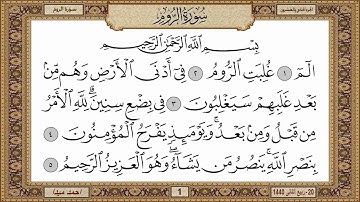 الجزء الحادي والعشرين
سورة الروم
سُورَةُ الرُّومِ
بِسْمِ اللَّهِ الرَّحْمَٰنِ الرَّحِيمِ
الٓمٓ ١ غُلِبَتِ الرُّومُ ٢ فِىٓ أَدْنَى الْأَرْضِ وَهُم مِّنۢ
بَعْدِ غَلَبِهِمْ سَيَغْلِبُونَ ٣ فِى بِضْعِ سِنِينَ ۗ لِلَّهِ الْأَمْرُ
مِن قَبْلُ وَمِنۢ بَعْدُ ۚ وَيَوْمَئِذٍ يَفْرَحُ الْمُؤْمِنُونَ ٤
بِنَصْرِ اللَّهِ ۚ يَنصُرُ مَن يَشَآءُ ۖ وَهُوَ الْعَزِيزُ الرَّحِيمُ ٥
20 - ربيع الثاني 1440
1